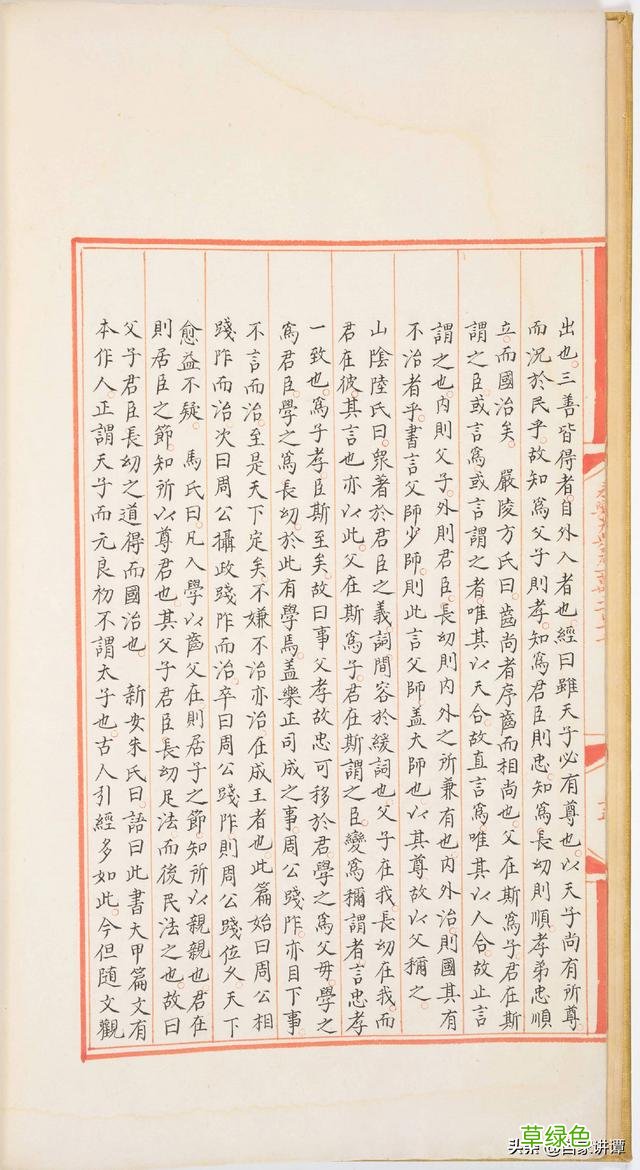 出也三善皆得者自外入者也經曰雖天子必有尊也以天子尚有所尊
而況於民乎故知爲父子則孝知爲君臣則忠知爲長幼則順孝弟忠順
立而國治矣 嚴陵方氏曰齒尚者序齒而相尚也父在斯爲子君在斯
謂之臣或言爲或言謂之者唯其以天合故直言爲唯其以人合故止言
謂之也内則父子外則君臣長幼則内外之所兼有也内外治則國其有
不治者乎書言父師少師則此言父師盖大師也以其尊故以父稱之
山陰陸氏曰衆著於君臣之義詞間容於緩詞也父子在我長幼在我而
君在彼其言也亦以此父在斯爲子君在斯謂之臣變爲稱謂者言忠孝
一致也爲子孝臣斯至矣故曰事父孝故忠可移於君學之爲父毋學之
爲君臣學之爲長幼於此有學焉盖樂正司成之事周公踐阼亦目下事
不言而治至是天下定矣不嫌不治亦治在成王者也此篇始曰周公相
踐阼而治次曰周公攝政踐阼而治卒曰周公踐阼則周公踐位久天下
愈益不疑 馬氏曰凡入學以齒父在則居子之節知所以親親也君在
則居臣之節知所以尊君也其父子君臣長幼足法而後民法之也故曰
父子君臣長幼之道得而國治也 新安朱氏曰語曰此書大甲篇文有
本作人正謂天子而元良初不謂太子也古人引經多如此今但随文觀
草绿色
头条@百家讲谭